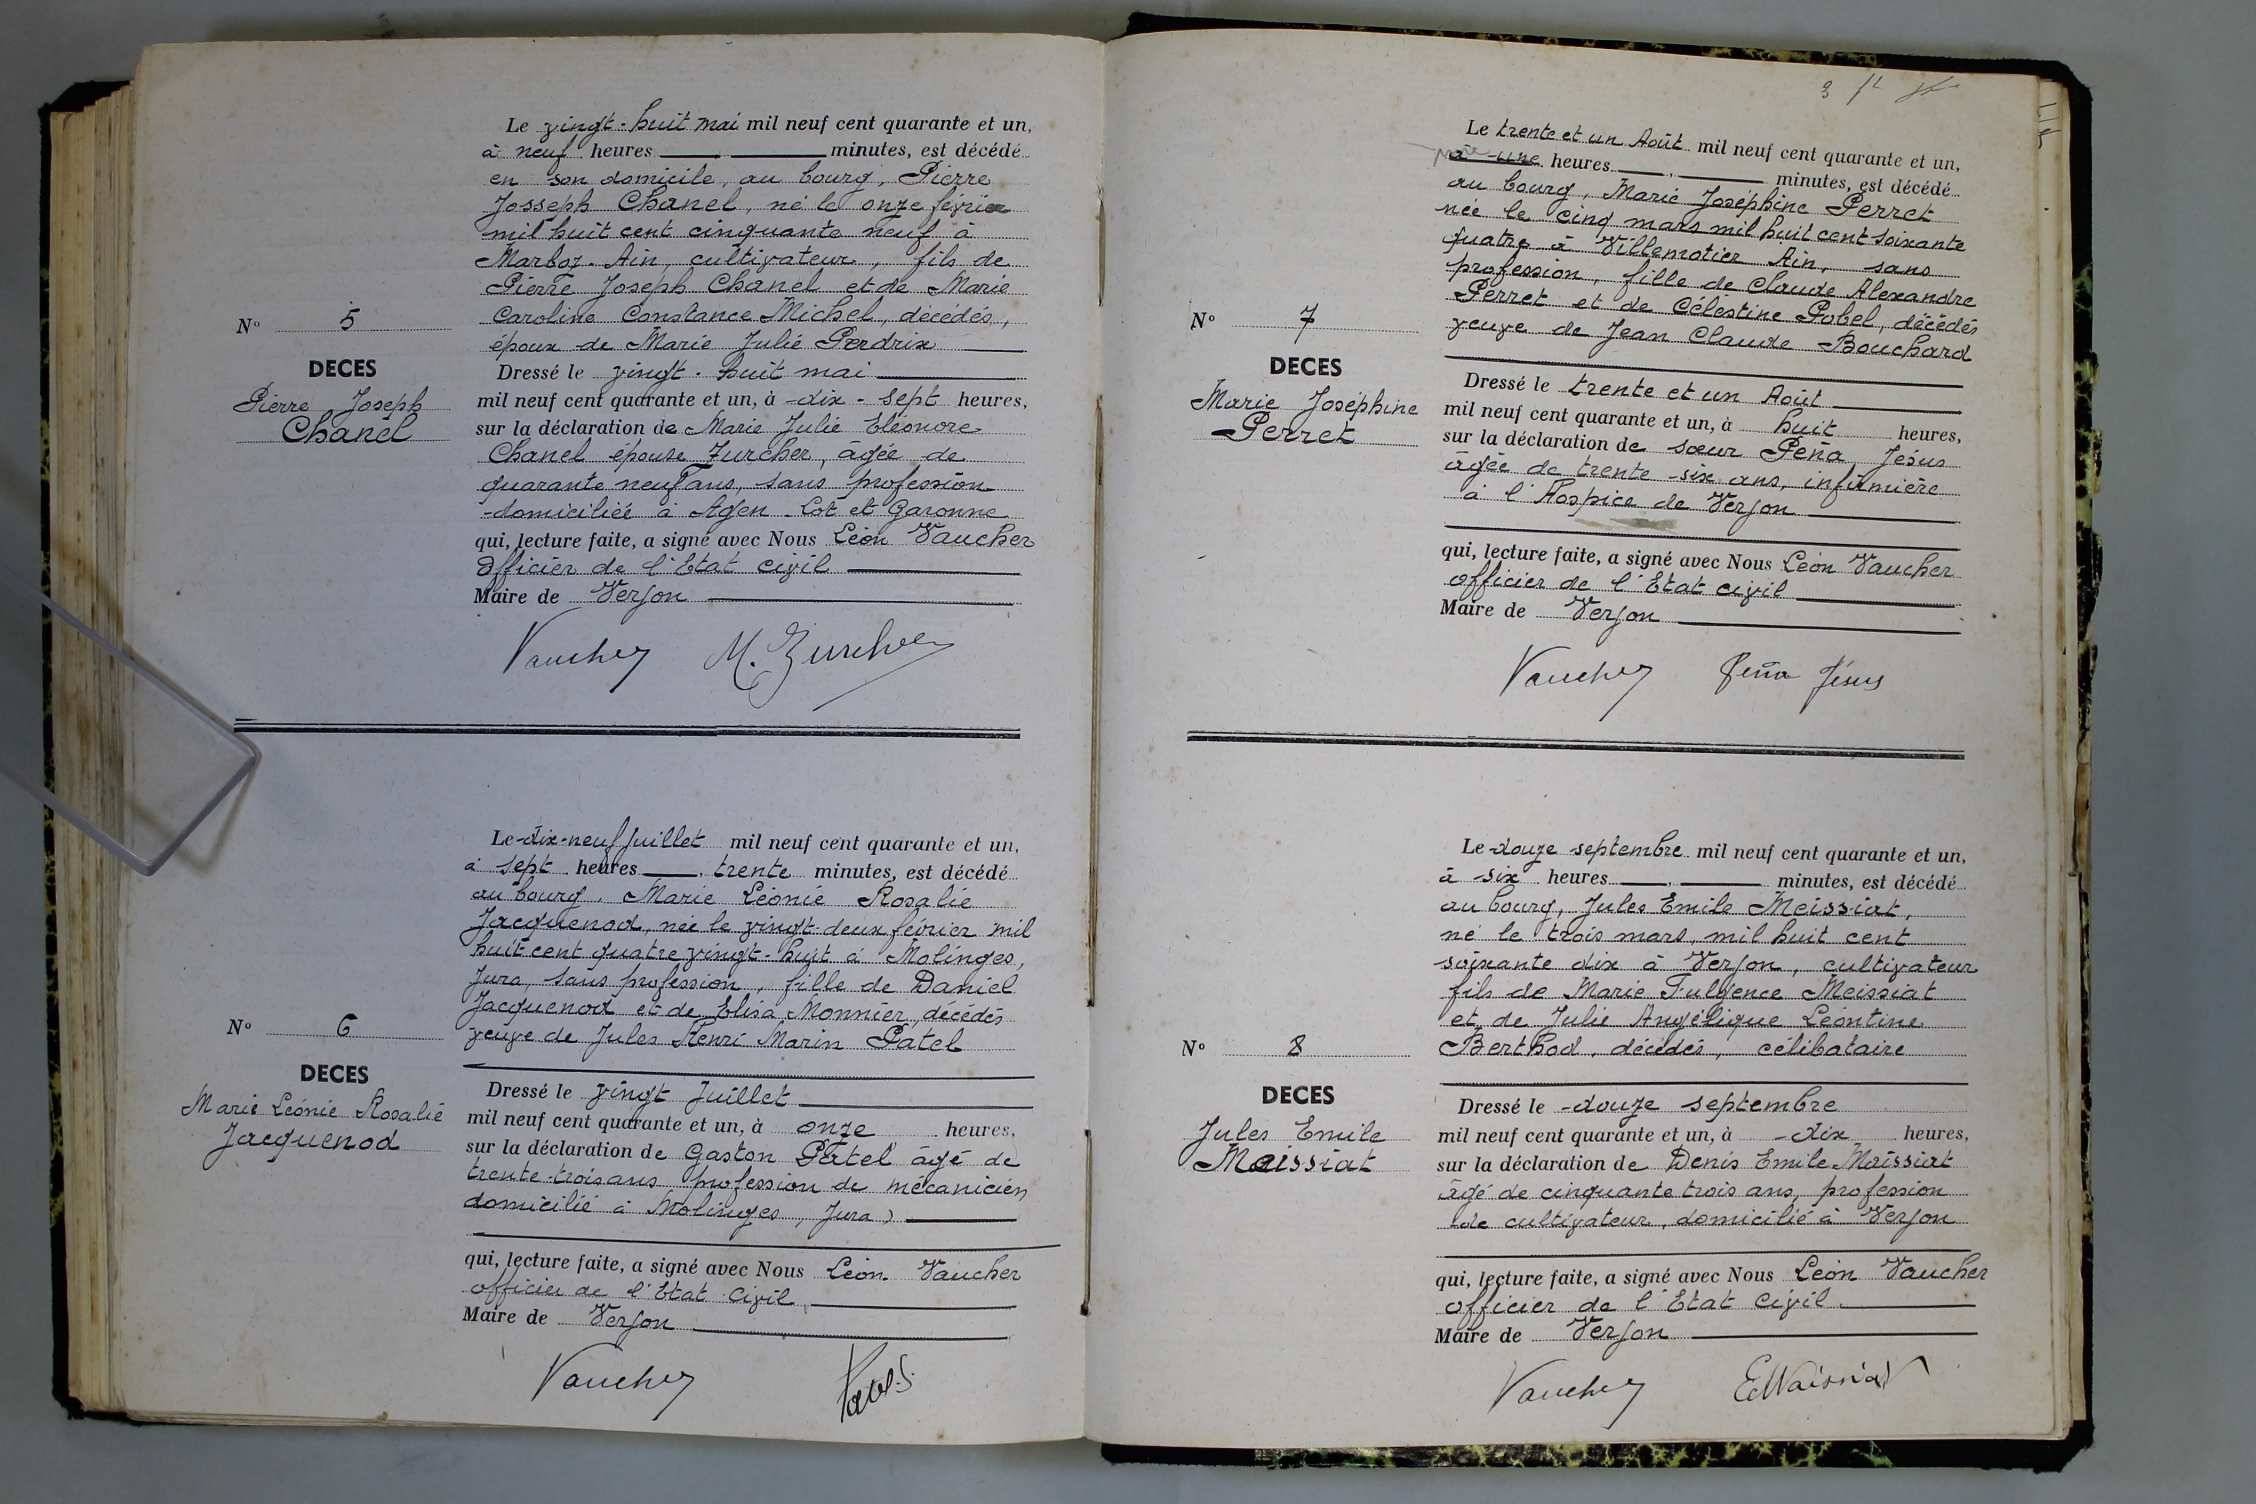 Le vingt-huit mai mil neuf cent quarante et un,
à neuf heures minutes, est décédé
en son domicile, au bourg, Pierre
Josseph Chanel, né le onze février
mil huit cent cinquante neuf à
Marboz-Ain, cultivateur, fils de
Pierre Joseph Chanel et de Marie
Caroline Constance Michel, décédés,
époux de Marie Julie Perdrix
N° 5
DECES
Pierre Joseph
Chanel
Dressé le vingt-huit mai
mil neuf cent quarante et un, à dix-sept heures,
sur la déclaration de Marie Julie Eléonore
Chanel épouse Zurcher, âgée de
quarante neuf ans, sans profession
domiciliée à Agen-Lot et Garonne
qui, lecture faite, a signé avec Nous Léon Vaucher
Officier de l'Etat civil
Maire de Verjon
Vaucher M. Zurcher
Le dix-neuf Juillet mil neuf cent quarante et un,
à sept heures, trente minutes, est décédé
au bourg, Marie Léonie Rosalie
Jacquenod, née le vingt-deux février mil
huit cent quatre vingt-huit à Molinges,
Jura, sans profession, fille de Daniel
Jacquenod et de Elisa Monnier, décédés
veuve de Jules Henri Marin Patel
N° 6
DECES
Marie Léonie Rosalie
Jacquenod
Dressé le vingt Juillet
mil neuf cent quarante et un, à onze heures,
sur la déclaration de Gaston Patel âgé de
trente-trois ans profession de mécanicien
domicilié à Molinges, Jura)
qui, lecture faite, a signé avec Nous Léon Vaucher
officier de l'Etat Civil,
Maire de Verjon
Vaucher
3
Le trente et un Août mil neuf cent quarante et un,
à une heures, minutes, est décédé
au bourg, Marie Joséphine Perret
née le cinq mars mil huit cent soixante
quatre à Villemotier Ain, sans
profession, fille de Claude Alexandre
Perret et de Célestine Pobel, décédés
veuve de Jean Claude Bouchard
N° 7
DECES
Marie Joséphine
Perret
Dressé le trente et un Août
mil neuf cent quarante et un, à huit heures,
sur la déclaration de sœur Peña Jésus
âgée de trente-six ans, infirmière
à l'Hospice de Verjon
qui, lecture faite, a signé avec Nous Léon Vaucher
officier de l'Etat civil
Maire de Verjon
Vaucher Peña Jésus
Le douze septembre mil neuf cent quarante et un,
à six heures, minutes, est décédé
au bourg, Jules Emile Meissiat,
né le trois mars, mil huit cent
soixante dix à Verjon, cultivateur
fils de Marie Fulgence Meissiat
et de Julie Angélique Léontine
Berthod, décédés, célibataire
N° 8
DECES
Jules Emile
Meissiat
Dressé le douze septembre
mil neuf cent quarante et un, à dix heures,
sur la déclaration de Denis Emile Maissiat
âgé de cinquante trois ans, profession
de cultivateur, domicilié à Verjon
qui, lecture faite, a signé avec Nous Léon Vaucher
Officier de l'Etat civil.
Maire de Verjon
Vaucher EMaissiat